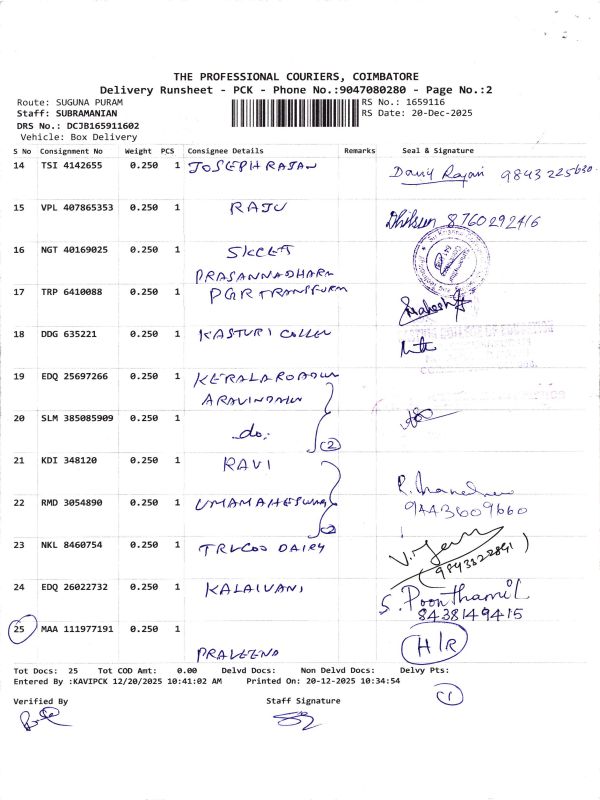 THE PROFESSIONAL COURIERS, COIMBATORE
Delivery Runsheet - PCK - Phone No.:9047080280 - Page No.:2
Route: SUGUNA PURAM
RS No.: 1659116
Staff: SUBRAMANIAN
RS Date: 20-Dec-2025
DRS No.: DCJB165911602
Vehicle: Box Delivery
S No Consignment No Weight PCS Consignee Details Remarks Seal & Signature
14 TSI 4142655 0.250 1 JOSEPH RAJAN Dany Rajan 9843225630
15 VPL 407865353 0.250 1 RAJU 8760292416
16 NGT 40169025 0.250 1 SKCET
PRASANNADHARM
17 TRP 6410088 0.250 1 PGR TRANSFORM Mahesh
18 DDG 635221 0.250 1 KASTURI
19 EDQ 25697266 0.250 1 KERALA
20 SLM 385085909 0.250 1 do. (2)
21 KDI 348120 0.250 1 RAVI
22 RMD 3054890 0.250 1 9443609660
23 NKL 8460754 0.250 1 DAIRY
24 EDQ 26022732 0.250 1 KALAIVANI S. Poonthamil
8438149415
25 MAA 111977191 0.250 1 PRAVEENA H/R
Tot Docs: 25 Tot COD Amt: 0.00 Delvd Docs: Non Delvd Docs: Delvy Pts:
Entered By :KAVIPCK 12/20/2025 10:41:02 AM Printed On: 20-12-2025 10:34:54
Verified By Staff Signature